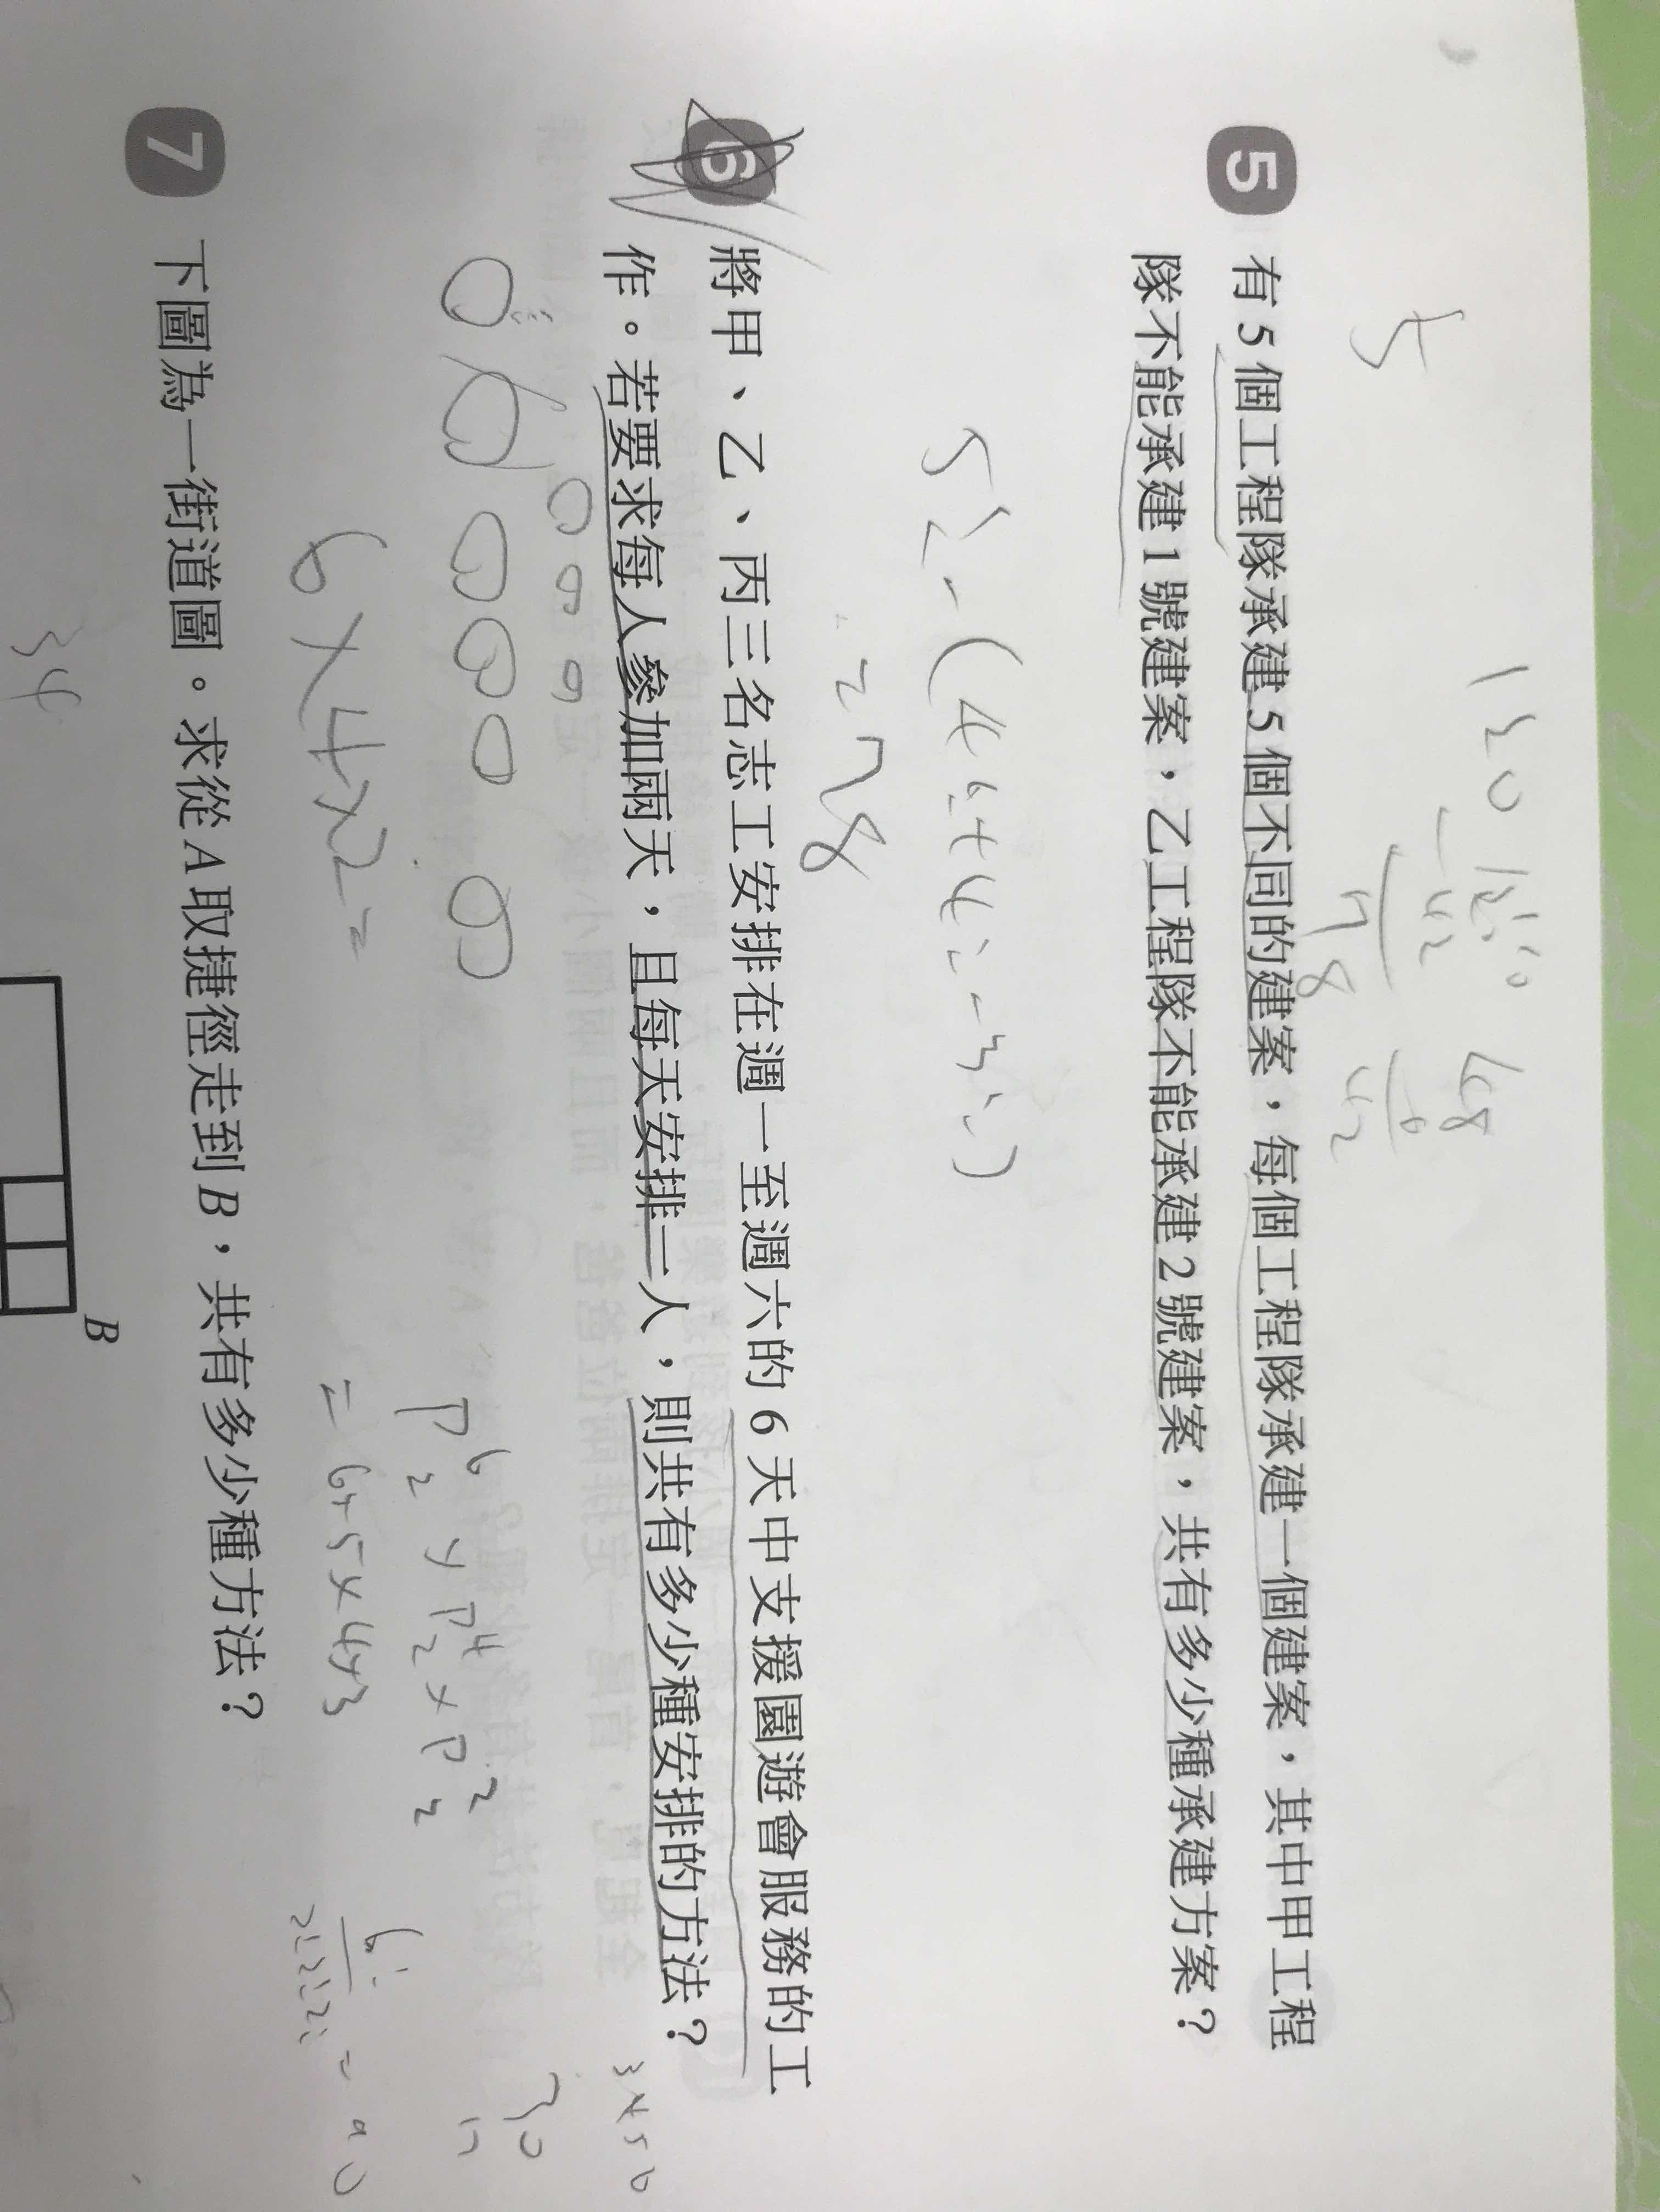 5
120
120
48
- 42
6
78
42
5 有5個工程隊承建5個不同的建案，每個工程隊承建一個建案，其中甲工程
隊不能承建1號建案，乙工程隊不能承建2號建案，共有多少種承建方案？
5! - (4! + 4! - 3!)
= 78
6 將甲、乙、丙三名志工安排在週一至週六的6天中支援園遊會服務的工
作。若要求每人參加兩天，且每天安排一人，則共有多少種安排的方法？
3456
30
P⁶₂ × P⁴₂ × P²₂
6×4×2=
= 6×5×4×3
6!
2!2!2! = 90
7 下圖為一街道圖。求從A取捷徑走到B，共有多少種方法？
B
34